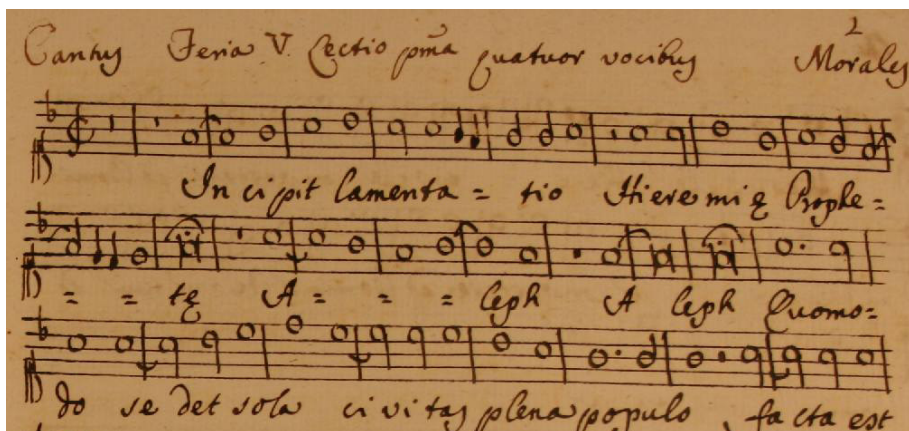 2
Cantus Feria V. Lectio pma quatuor vocibus Morales
In ci pit lamenta = tio Hieremię Prophe =
= = tę A = = = leph A leph Quomo =
do se det sola civitas plena populo, facta est